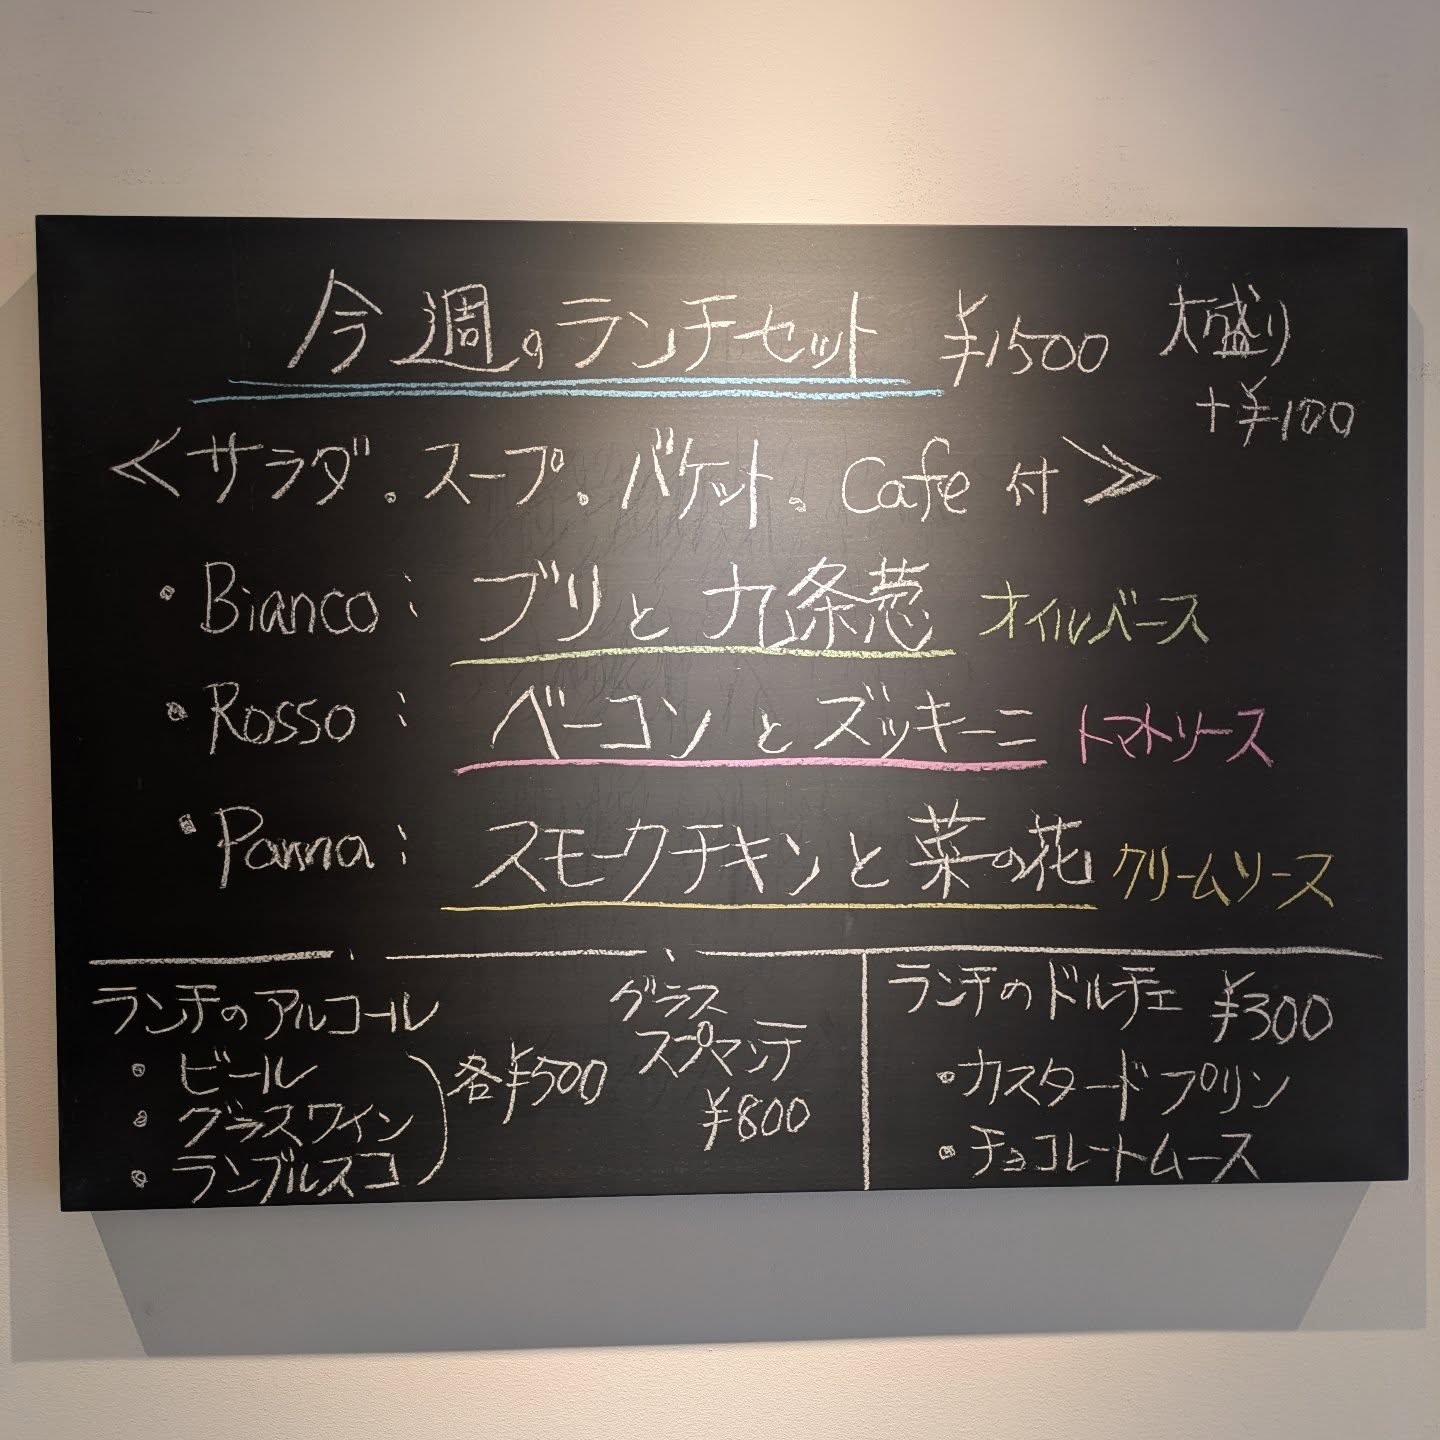 今週のランチセット ¥1500 大盛り
+¥100
≪サラダ。スープ。バケット。Cafe付≫
・Bianco: ブリと九条葱 オイルベース
・Rosso: ベーコンとズッキーニ トマトソース
・Panna: スモークチキンと菜の花 クリームソース
ランチのアルコール
・ビール
・グラスワイン
・ランブルスコ
各¥500
グラス
スプマンテ
¥800
ランチのドルチェ ¥300
・カスタードプリン
・チョコレートムース